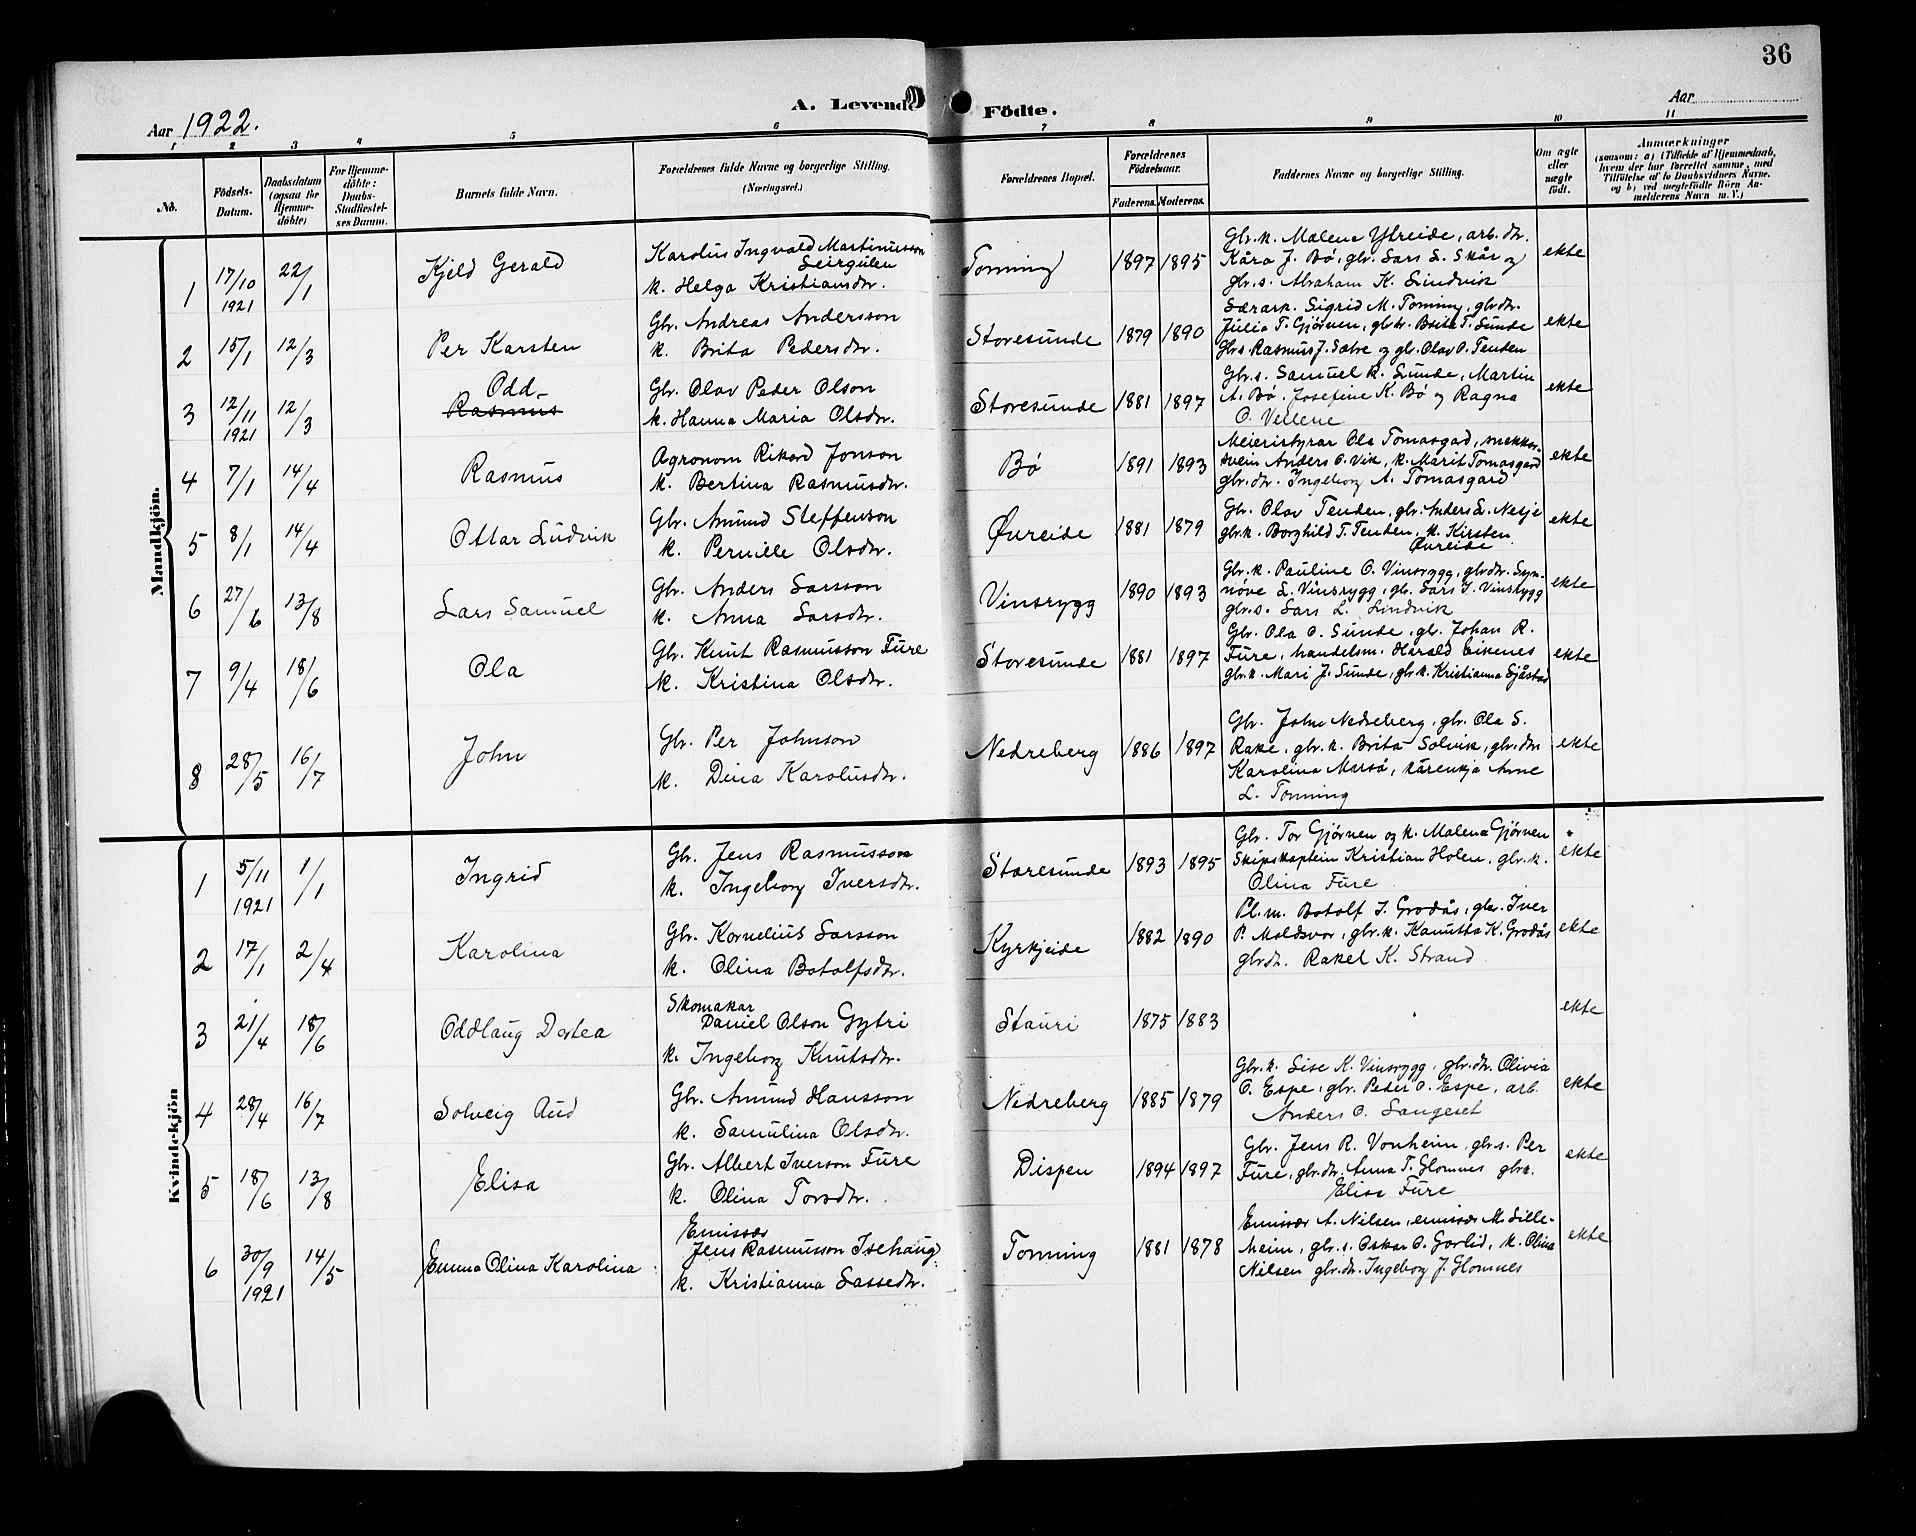 36
A. Levende Födte.
Aar 1922.
Aar
1 2 3 4 5 6 7 8 9 10 11
No.
Födsels-Datum.
Daabsdatum (ogsaa for Hjemme-döbte)
For Hjemme-döbte: Daabs-Stadfæstel-ses Datum.
Barnets fulde Navn.
Forældrenes fulde Navne og borgerlige Stilling. (Næringsvei.)
Forældrenes Bopæl.
Forældrenes Födselsaar.
Faderens. Moderens.
Faddernes Navne og borgerlige Stilling.
Om ægte eller uægte födt.
Anmærkninger
(saasom: a) i Tilfælde af Hjemmedaab, hvem der har forrettet samme, med Tilföielse af to Daabsvidners Navne, og b) ved uægtefödte Börn Anmelderens Navn m. V.)
Mandkjön.
1 17/10 1921 22/1 Kjeld Gerald
Karolus Ingvald Martinusson Leirgulen
k. Helga Kristiansdtr.
Tonning 1897 1895
Gbr.k. Malene Ytreide, arb.dtr.
Kåra J. Bø, gbr. Lars L. Skår og
gbr.s. Abraham K. Lindvik
ekte
2 15/1 12/3 Per Karsten
Gbr. Andreas Andersson
k. Brita Pedersdtr.
Storesunde 1879 1890
Lærark. Sigrid M. Tonning, gbrdtr.
Julia T. Gjørven, gbrdr. Brita T. Sunde
Gbrs. Rasmus J. Sætre og gbr. Olav O. Tenden
ekte
3 12/11 1921 12/3 Odd Rasmus
Gbr. Olav Peder Olson
k. Hanna Maria Olsdtr.
Storesunde 1881 1897
Gbr.s. Samuel R. Sunde, Martin
A. Bø, Josefine K. Bø og Ragna
O. Vellene
ekte
4 7/1 14/4 Rasmus
Agronom Rikard Jonson
k. Bertina Rasmusdtr.
Bø 1891 1893
Meieristyrar Ola Tomasgard, snekkar-
svein Anders O. Vik, k. Marit Tomasgard
gbr.dtr. Ingeborg A. Tomasgard
ekte
5 8/1 14/4 Ottar Ludvik
Gbr. Amund Steffenson
k. Pernille Olsdtr.
Øvreide 1881 1879
Gbr. Olav Tenden, gbr. Anders L. Nesje
gbr.k. Borghild T. Tenden, k. Kirsten
Øvreide
ekte
6 27/6 13/8 Lars Samuel
Gbr. Anders Larsson
k. Anna Larsdtr.
Vinsrygg 1890 1893
Gbr.k. Pauline O. Vinsrygg, gbrdtr. Syn-
nøve L. Vinsrygg, gbr. Lars I. Vinsrygg
gbr.s. Lars L. Lindvik
ekte
7 9/4 18/6 Ola
Gbr. Knut Rasmusson Fure
k. Kristina Olsdtr.
Storesunde 1881 1897
Gbr. Ola O. Sunde, gbr. Johan R.
Fure, handelsm. Harald Eikenes
gbr.k. Mari J. Sunde, gbr.k. Kristianna Sjåstad
ekte
8 28/5 16/7 John
Gbr. Per Johnson
k. Dina Karolusdtr.
Nedreberg 1886 1897
Gbr. John Nedreberg, gbr. Ola S.
Rake, gbr.k. Brita Solvik, gbr.dtr.
Karolina Marså, Arne
L. Tonning
ekte
Kvindekjön
1 5/11 1921 1/1 Ingrid
Gbr. Jens Rasmusson
k. Ingeborg Iversdtr.
Storesunde 1893 1895
Gbr. Tor Gjørven og k. Malene Gjørven
Skipskaptein Kristian Holen, gbr.k.
Olina Fure
ekte
2 17/1 2/4 Karolina
Gbr. Kornelius Larsson
k. Olina Botolfsdtr.
Kyrkjeide 1882 1890
Pl.m. Botolf I. Grodås, gbr. Iver
P. Moldsvor, gbr.k. Kanutta K. Grodås
gbrdtr. Rakel K. Strand
ekte
3 21/4 18/6 Oddlaug Dortea
Skomakar
Daniel Olson Gytri
k. Ingeborg Knutsdtr.
Stauri 1875 1883
ekte
4 28/4 16/7 Solveig Aud
Gbr. Amund Hansson
k. Samulina Olsdtr.
Nedreberg 1885 1879
Gbr.k. Lise K. Vinsrygg, gbr.dtr. Olivia
O. Espe, gbr. Peder O. Espe, arb.
Anders O. Langeset
ekte
5 18/6 13/8 Elisa
Gbr. Albert Iverson Fure
k. Olina Torsdtr.
Dispen 1894 1897
Gbr. Jens R. Vonheim, gbr.s. Per
Fure, gbr.dtr. Anna T. Glomnes gbr.k.
Elise Fure
ekte
6 30/9 1921 14/5 Emma Olina Karolina
Emissær
Jens Rasmusson Isehaug
k. Kristianna Lassedtr.
Tonning 1881 1878
Emissær A. Nilsen, emissær M. Lille-
heim, gbr.s. Oskar O. Gorlid, k. Olina
Nilsen gbr.dtr. Ingeborg J. Glomnes
ekte